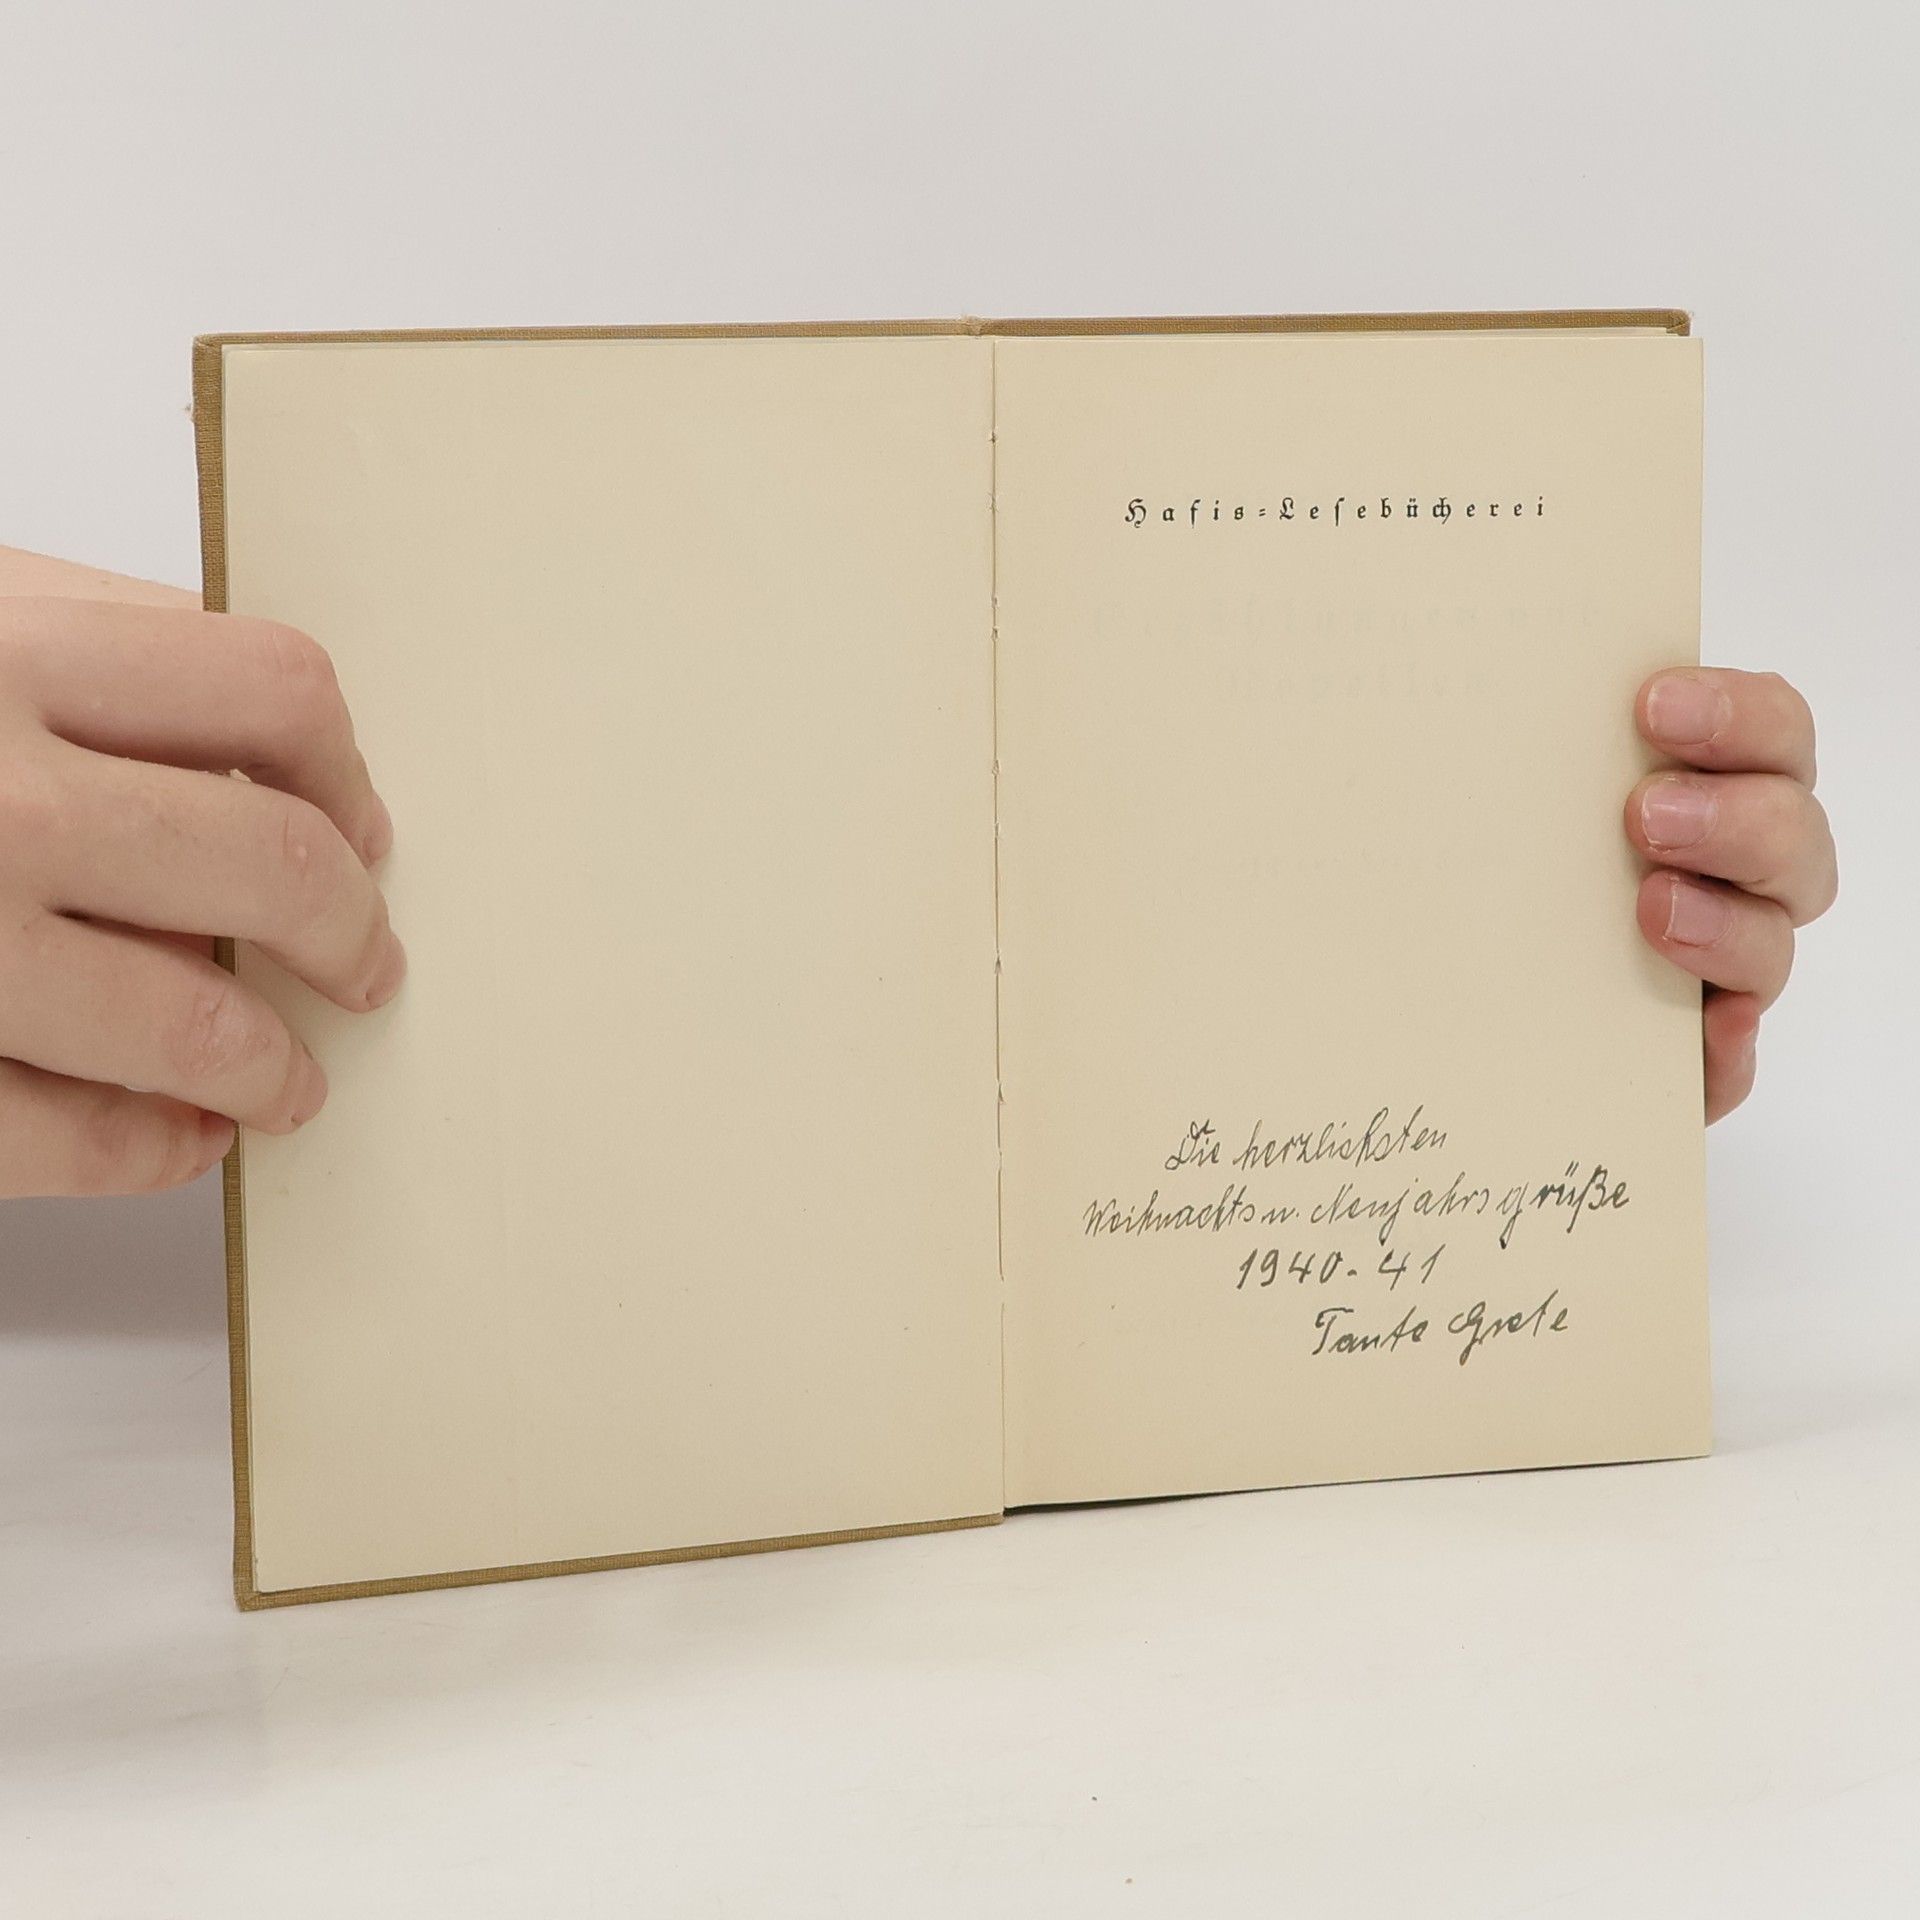 Hafis-Lesebücherei
Die herzlichsten
Weihnachts u. Neujahrsgrüße
1940-41
Tante Grete